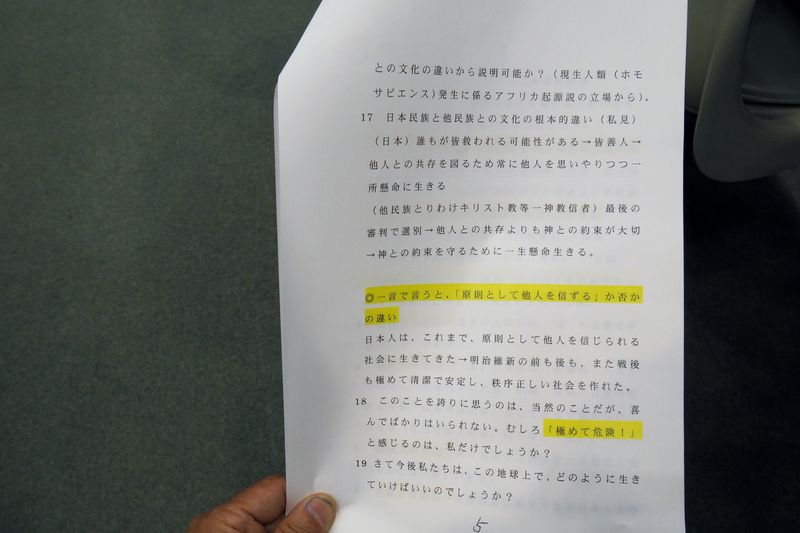 との文化の違いから説明可能か？（現生人類（ホモ
サピエンス）発生に係るアフリカ起源説の立場から）。
17　日本民族と他民族との文化の根本的違い（私見）
（日本）誰もが皆救われる可能性がある→皆善人→
他人との共存を図るため常に他人を思いやりつつ一
所懸命に生きる
（他民族とりわけキリスト教等一神教信者）最後の
審判で選別→他人との共存よりも神との約束が大切
→神との約束を守るために一生懸命生きる。
◎一言で言うと、「原則として他人を信ずる」か否か
の違い
日本人は、これまで、原則として他人を信じられる
社会に生きてきた→明治維新の前も後も、また戦後
も極めて清潔で安定し、秩序正しい社会を作れた。
18　このことを誇りに思うのは、当然のことだが、喜
んでばかりはいられない。むしろ「極めて危険！」
と感じるのは、私だけでしょうか？
19 さて今後私たちは、この地球上で、どのように生き
ていけばいいのでしょうか？
5